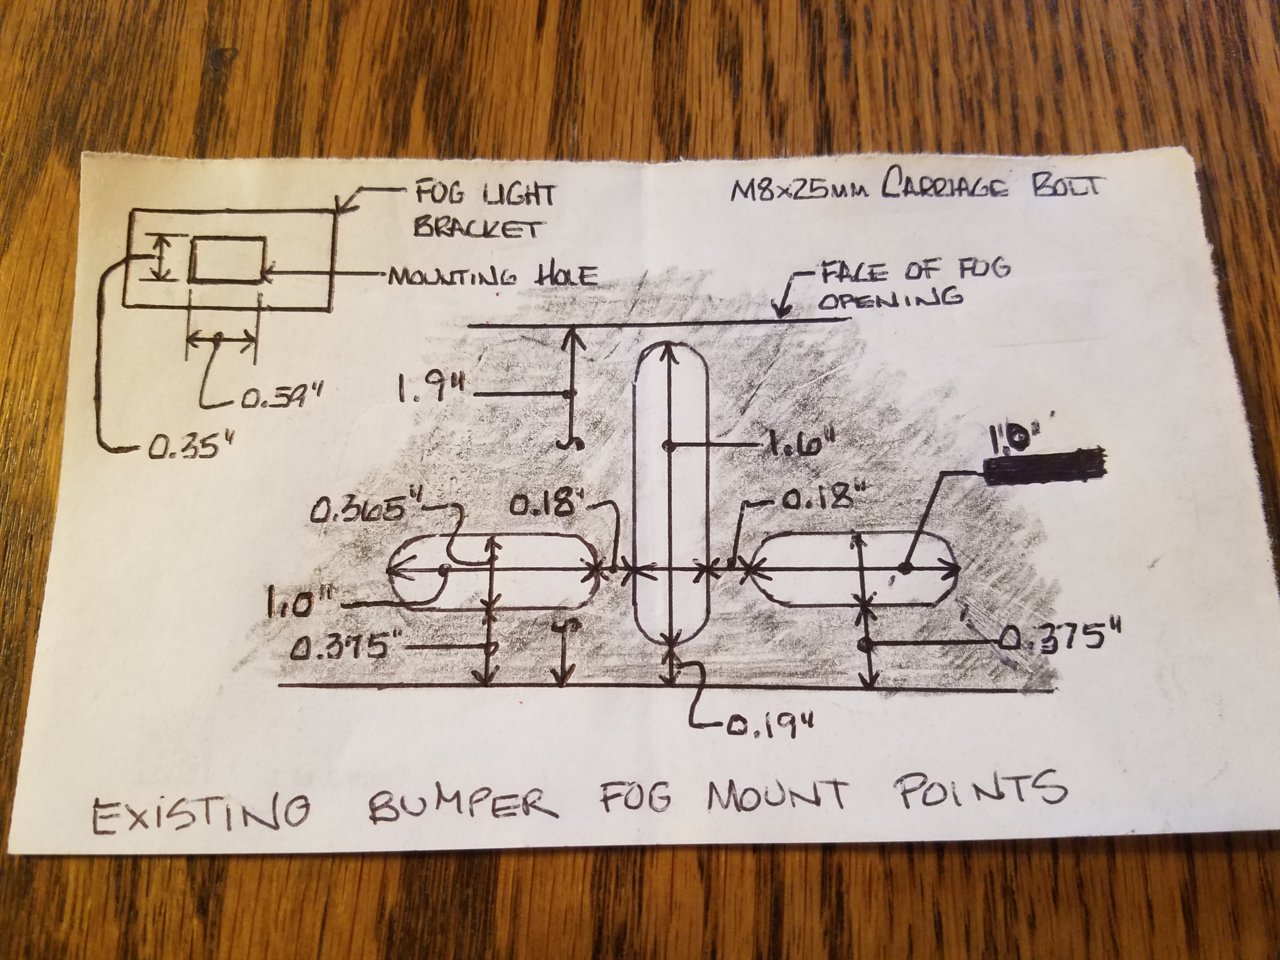 FOG LIGHT
BRACKET
M8x25mm CARRIAGE BOLT
MOUNTING HOLE
FACE OF FOG
OPENING
0.59"
0.35"
1.9"
1.6"
1.0"
0.365"
0.18"
0.18"
1.0"
0.375"
0.375"
0.19"
EXISTING BUMPER FOG MOUNT POINTS